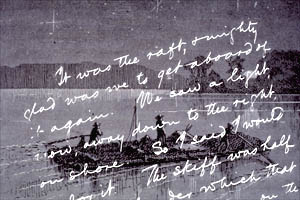 It was the raft, & mighty
glad was we to get aboard of
it again. We saw a light,
now, away down to the right,
on shore. So I said I would
for it. The skiff was half
which that
on the